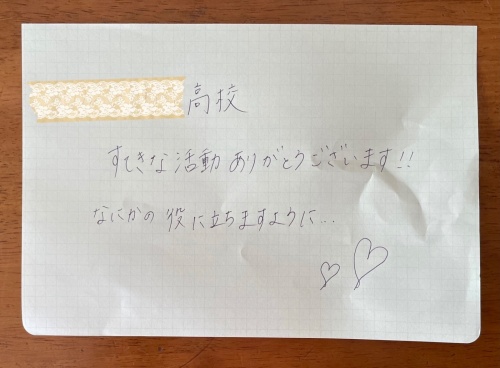 高校
すてきな活動ありがとうございます!!
なにかの役に立ちますように...